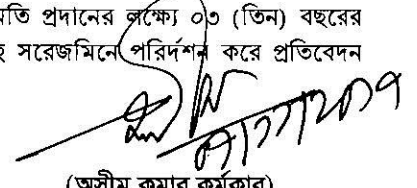 মতি প্রদানের লক্ষ্যে ০৩ (তিন) বছরের
হ সরেজমিনে পরিদর্শন করে প্রতিবেদন
(অসীম কুমার কর্মকার)